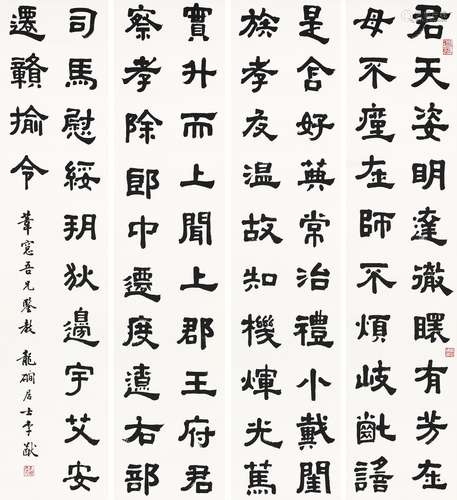 君天姿明達徹有芳在
母不在師不煩岐齔謠
是含好典常治禮小戴閨
族孝友温故知機煇光篤
實升而上聞上郡王府君
察孝除郎中遷度遼右部
司馬慰綏朔狄邊宇艾安
遷贛揄令
葦窓吾兄鑒教 龍磵居士李猷